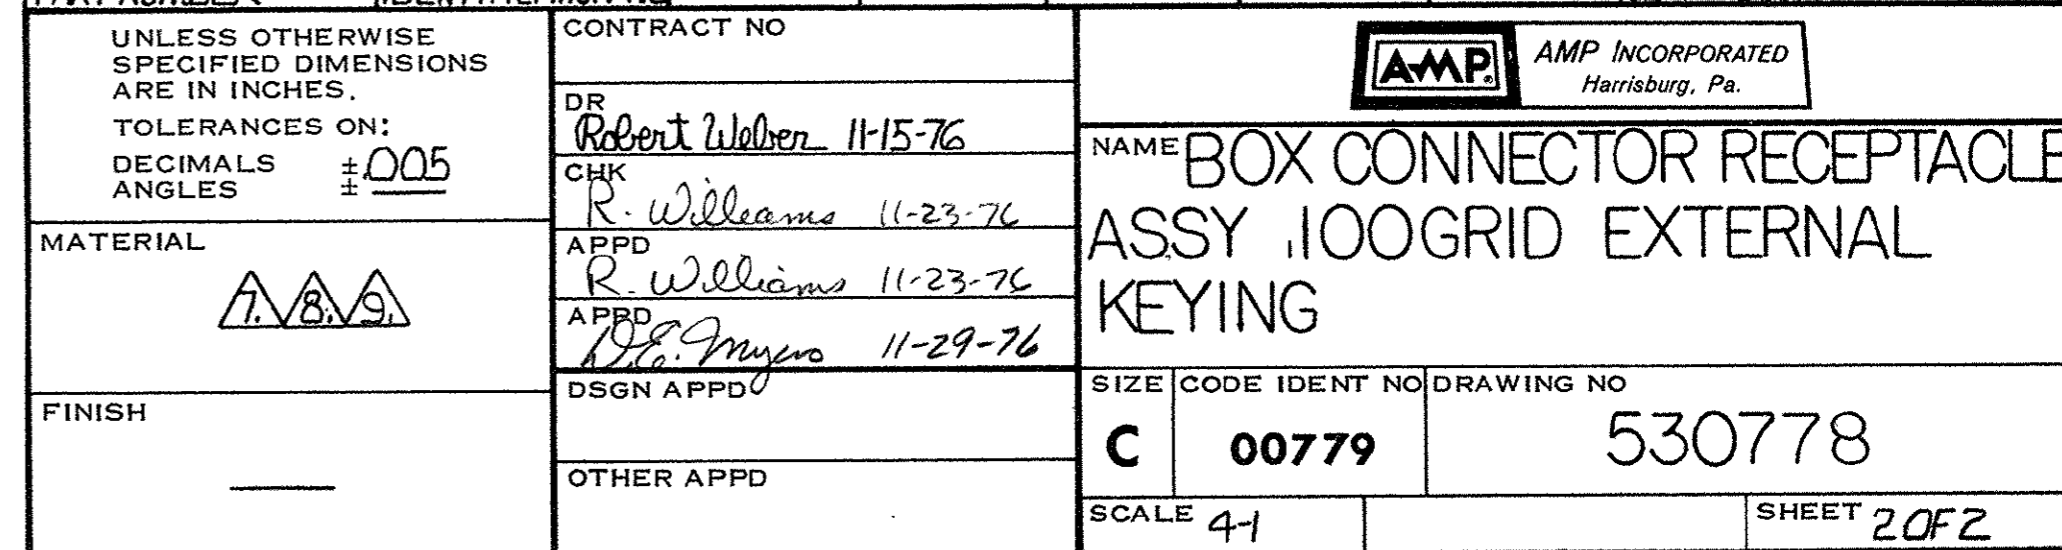 UNLESS OTHERWISE
SPECIFIED DIMENSIONS
ARE IN INCHES.
TOLERANCES ON:
DECIMALS ±.005
ANGLES ±
MATERIAL
7. 8. 9.
FINISH
CONTRACT NO
DR
Robert Weber 11-15-76
CHK
R. Williams 11-23-76
APPD
R. Williams 11-23-76
APPD
D.E. Myers 11-29-76
DSGN APPD
OTHER APPD
AMP AMP INCORPORATED
Harrisburg, Pa.
NAME BOX CONNECTOR RECEPTACLE
ASSY .100GRID EXTERNAL
KEYING
SIZE CODE IDENT NO DRAWING NO
C 00779 530778
SCALE 4-1 SHEET 2 OF 2